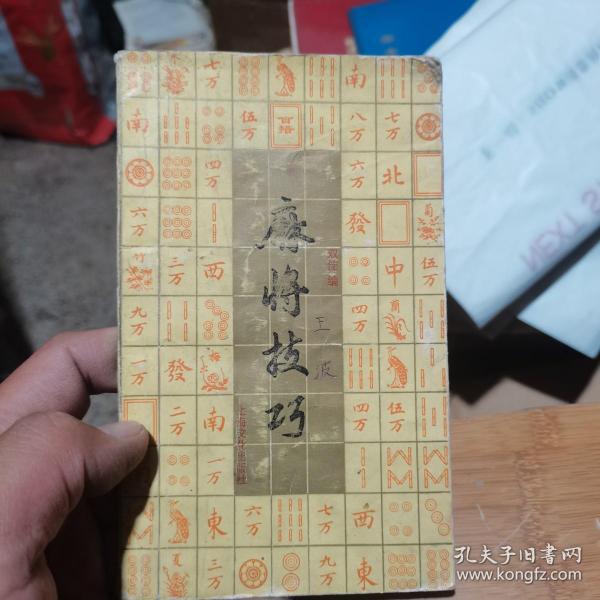 七万
南
南
伍万
百搭
八万
七万
四万
六万
北
六万
發
菊
竹
三万
西
中
伍万
九万
四万
一万
發
二万
南
四万
伍万
一万
東
六万
七万
西
夏
三万
九万
東
麻将技巧
双佳 编
王波
上海文化出版社
NEXT S
孔夫子旧书网
www.kongfz.com